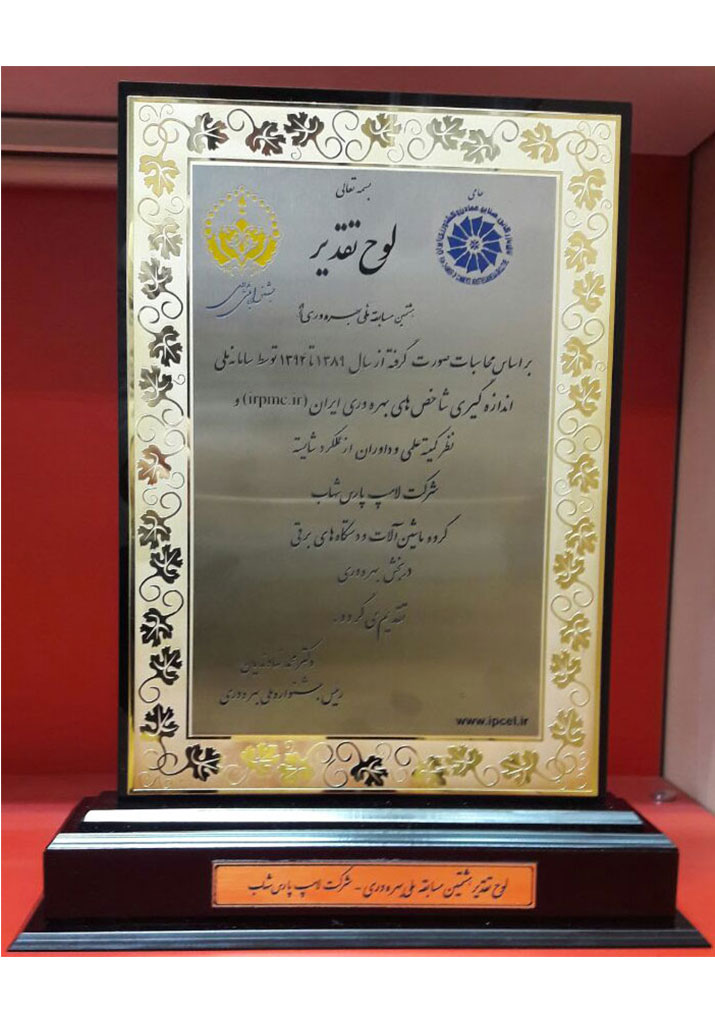 بسمه تعالی
حامی
لوح تقدیر
هشتمین مسابقه ملی بهره وری
بر اساس محاسبات صورت گرفته از سال ۱۳۸۹ تا ۱۳۹۲ توسط سامانه ملی
اندازه گیری شاخص های بهره وری ایران (irpmc.ir) و
نظر کمیته علمی و داوران از عملکرد شایسته
شرکت لامپ پارس شهاب
گروه ماشین آلات و دستگاه های برقی
در بخش بهره وری
تقدیم می گردد.
دکتر محمد نهاوندیان
رییس جشنواره ملی بهره وری
www.ipcet.ir
لوح تقدیر هشتمین مسابقه ملی بهره وری - شرکت لامپ پارس شهاب